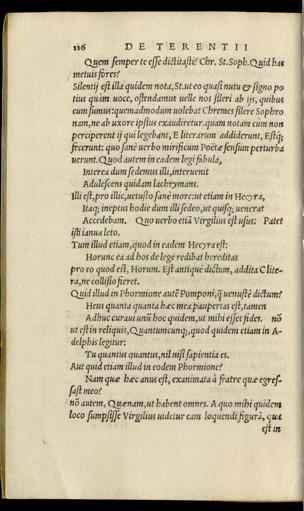 116 DE TERENTII
Quem semper te esse dictitasti? Chr. St. Soph. Quid has
metuis fores?
Silentij est illa quidem nota, St. ut eo quasi nutu & signo po
tius quàm uoce, ostendamus uelle nos sileri ab ijs, quibus
cum sumus: quemadmodum uolebat Chremes silere Sophro
nam, ne ab uxore ipsius exaudiretur. quam notam cùm non
perciperent ij qui legebant, E literarum addiderunt, Estq;
fecerunt: quo sanè uerbo mirificum Poëtæ sensum perturba
uerunt. Quod autem in eadem legi fabula,
Interea dum sedemus illi, interuenit
Adulescens quidam lachrymans.
Illi est, pro illic, uetusto sanè more: ut etiam in Hecyra,
Itaq; ineptus hodie dum illi sedeo, ut quisq; uenerat
Accedebam. Quo uerbo etiã Virgilius est usus: Patet
isti ianua leto.
Tum illud etiam, quod in eadem Hecyra est:
Horunc ea ad hos de lege redibat hereditas
pro eo quod est, Horum. Est antiquè dictum, addita C lite-
ra, ne collisio fieret.
Quid illud in Phormione autẽ Pomponi, q̃ uenustè dictum?
Heus quanta quanta hæc mea paupertas est, tamen
Adhuc curaui unũ hoc quidem, ut mihi esset fides. nõ
ut est in reliquis, Quantumcunq;, quod quidem etiam in A-
delphis legitur:
Tu quantus quantus, nil nisi sapientia es.
Aut quid etiam illud in eodem Phormione?
Nam quæ hæc anus est, exanimata à fratre quæ egres-
sa st meo?
nõ autem, Quænam, ut habent omnes. A quo mihi quidem
loco sumpsisse Virgilius uidetur eam loquendi figurã, quæ
est in